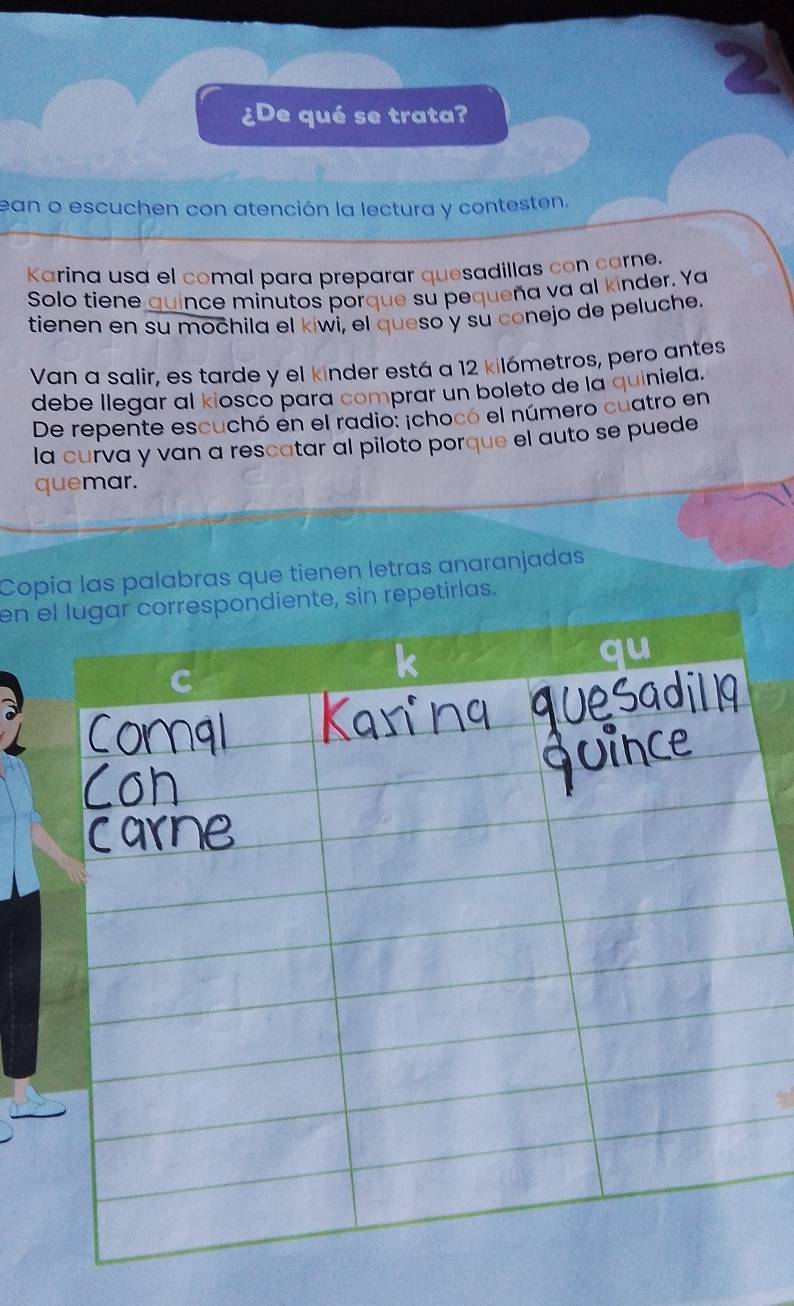 2
¿De qué se trata?
ean o escuchen con atención la lectura y contesten.
Karina usa el comal para preparar quesadillas con carne.
Solo tiene quince minutos porque su pequeña va al kínder. Ya
tienen en su mochila el kiwi, el queso y su conejo de peluche.
Van a salir, es tarde y el kínder está a 12 kilómetros, pero antes
debe llegar al kiosco para comprar un boleto de la quiniela.
De repente escuchó en el radio: ¡chocó el número cuatro en
la curva y van a rescatar al piloto porque el auto se puede
quemar.
Copia las palabras que tienen letras anaranjadas
en el lugar correspondiente, sin repetirlas.
c k qu
Comal Karina quesadilla
Con quince
carne